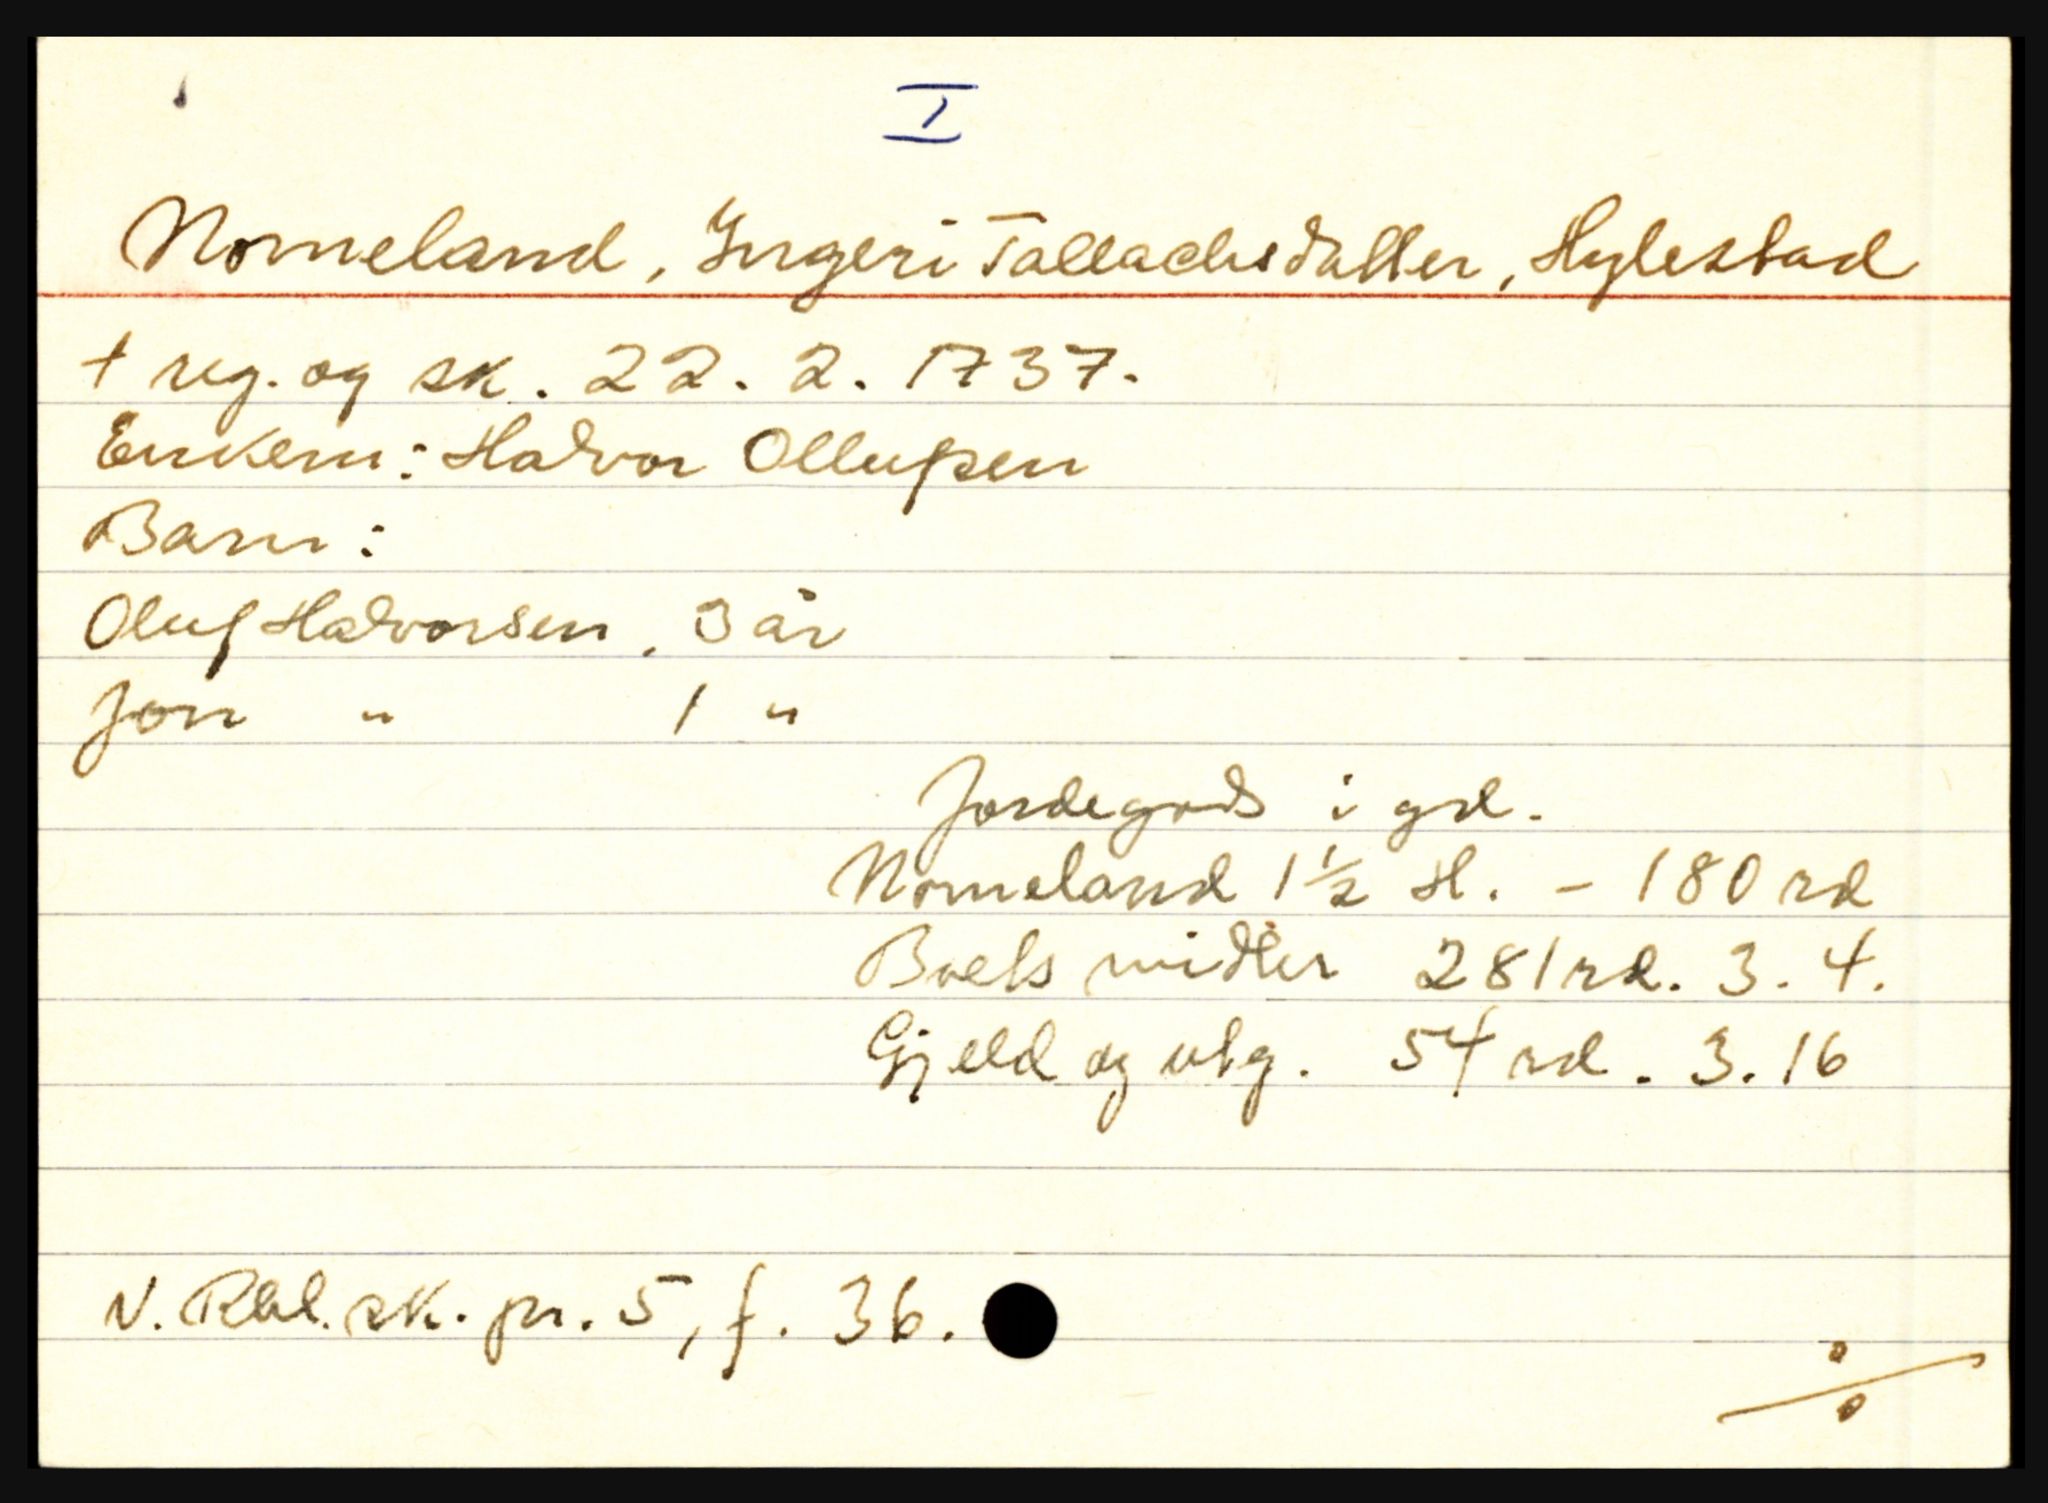 I
Nomeland, Ingeri Tallachsdatter, Hylestad
† reg. og sk. 22. 2. 1737.
Enkem: Halvor Ollufsen
Barn:
Oluf Halvorsen, 3 år
Jon " 1 "
Jordegods i gd.
Nomeland 1½ H. - 180 rd
Boets midler 281 rd. 3. 4.
Gjeld og utg. 54 rd. 3. 16
N. Rbl. sk. pr. 5, f. 36.